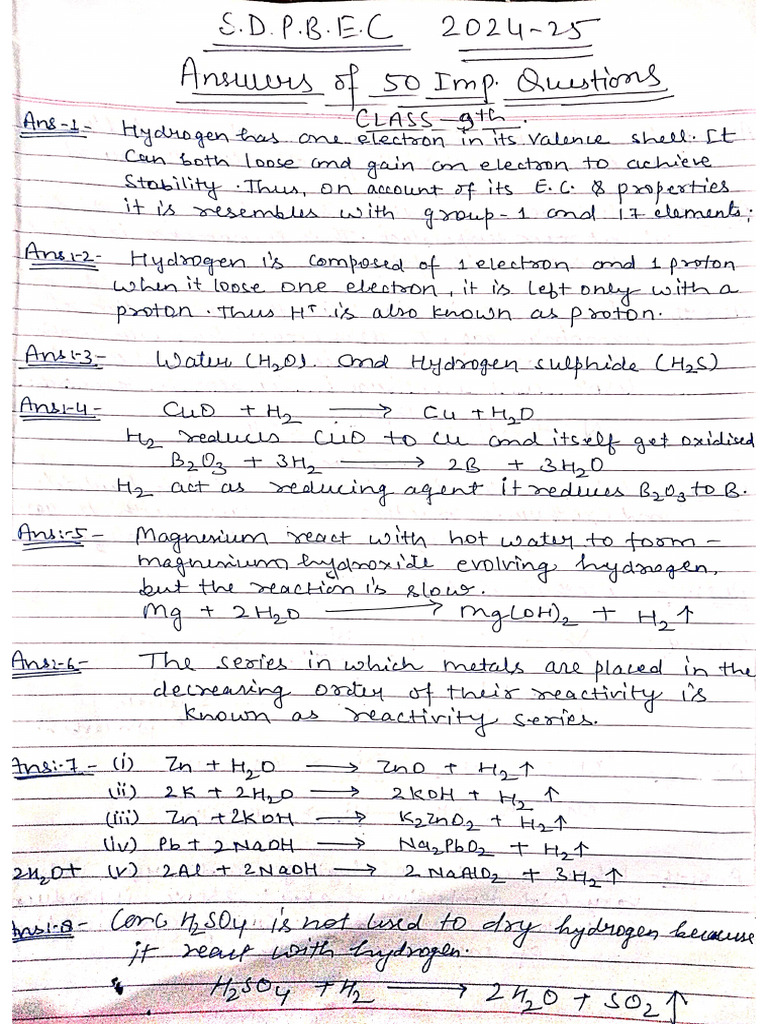 S.D.P.B.E.C 2024-25
Answers of 50 Imp. Questions
CLASS - 9th.
Ans-1- Hydrogen has one electron in its valence shell. It
can both loose and gain an electron to achieve
stability. Thus, on account of its E.C. & properties
it is resembles with group-1 and 17 elements;
Ans:-2- Hydrogen is composed of 1 electron and 1 proton
when it loose one electron, it is left only with a
proton. Thus H⁺ is also known as proton.
Ans:-3- Water (H₂O). and Hydrogen sulphide (H₂S)
Ans:-4- CuO + H₂ ⟶ Cu + H₂O
H₂ reduces CuO to Cu and itself get oxidised
B₂O₃ + 3H₂ ⟶ 2B + 3H₂O
H₂ act as reducing agent it reduces B₂O₃ to B.
Ans:-5- Magnesium react with hot water to form -
magnesium hydroxide evolving hydrogen,
but the reaction is slow.
Mg + 2H₂O ⟶ Mg(OH)₂ + H₂↑
Ans:-6- The series in which metals are placed in the
decreasing order of their reactivity is
known as reactivity series.
Ans:-7- (i) Zn + H₂O ⟶ ZnO + H₂↑
(ii) 2K + 2H₂O ⟶ 2KOH + H₂↑
(iii) Zn + 2KOH ⟶ K₂ZnO₂ + H₂↑
(iv) Pb + 2NaOH ⟶ Na₂PbO₂ + H₂↑
2H₂O+ (v) 2Al + 2NaOH ⟶ 2NaAlO₂ + 3H₂↑
Ans:-8- Conc H₂SO₄ is not used to dry hydrogen because
it react with hydrogen.
H₂SO₄ + H₂ ⟶ 2H₂O + SO₂↑